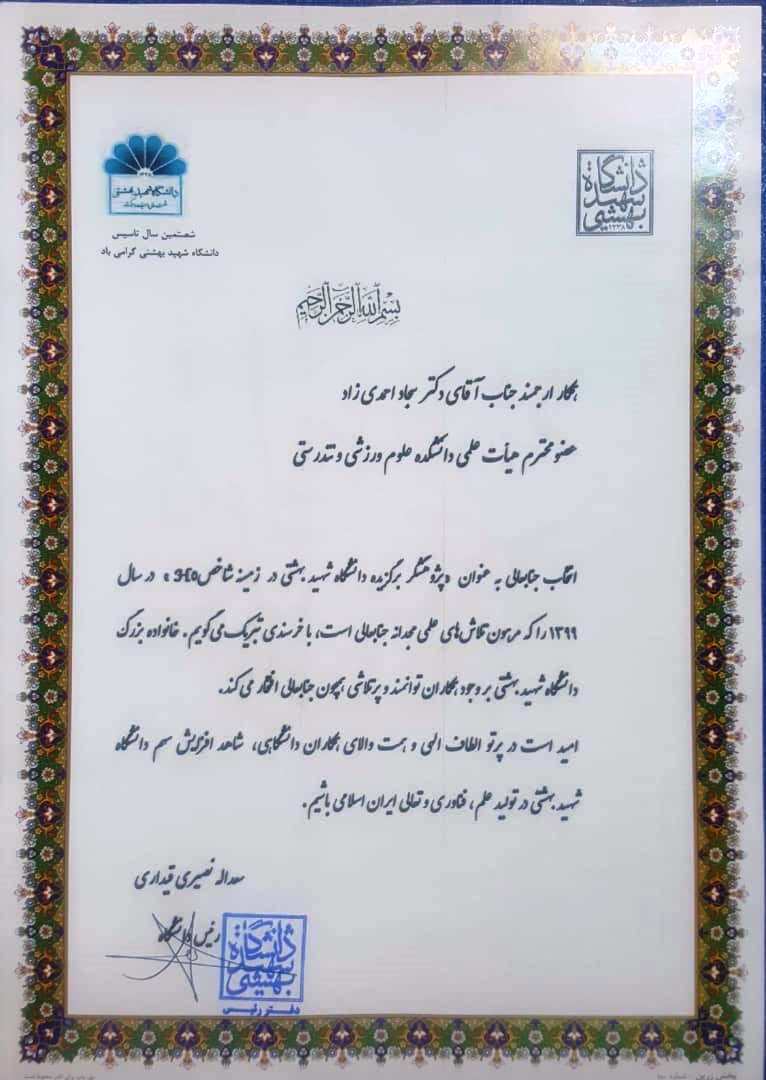 دانشگاه شهید بهشتی
۱۳۳۸
دانشگاه شهید بهشتی
شصتمین سال تاسیس
دانشگاه شهید بهشتی گرامی باد
بسم الله الرحمن الرحیم
همکار ارجمند جناب آقای دکتر سجاد احمدی زاد
عضو محترم هیأت علمی دانشکده علوم ورزشی و تندرستی
انتخاب جنابعالی به عنوان «پژوهشگر برگزیده دانشگاه شهید بهشتی در زمینه شاخص» در سال
۱۳۹۹ را که مرهون تلاش‌های علمی مجدانه جنابعالی است، با خرسندی تبریک می‌گویم. خانواده بزرگ
دانشگاه شهید بهشتی بر وجود همکاران توانمند و پرتلاشی همچون جنابعالی افتخار می‌کند.
امید است در پرتو الطاف الهی و همت والای همکاران دانشگاهی، شاهد افزایش سهم دانشگاه
شهید بهشتی در تولید علم، فناوری و تعالی ایران اسلامی باشیم.
سعداله نصیری قیداری
رئیس دانشگاه
دانشگاه شهید بهشتی
دفتر رئیس